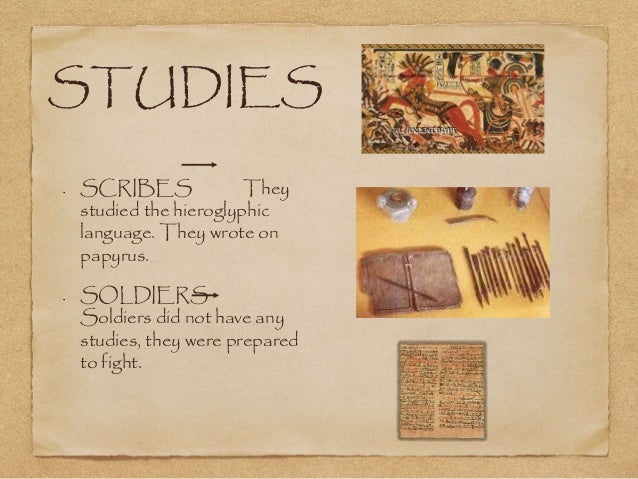 STUDIES
SCRIBES → They
studied the hieroglyphic
language. They wrote on
papyrus.
SOLDIERS →
Soldiers did not have any
studies, they were prepared
to fight.